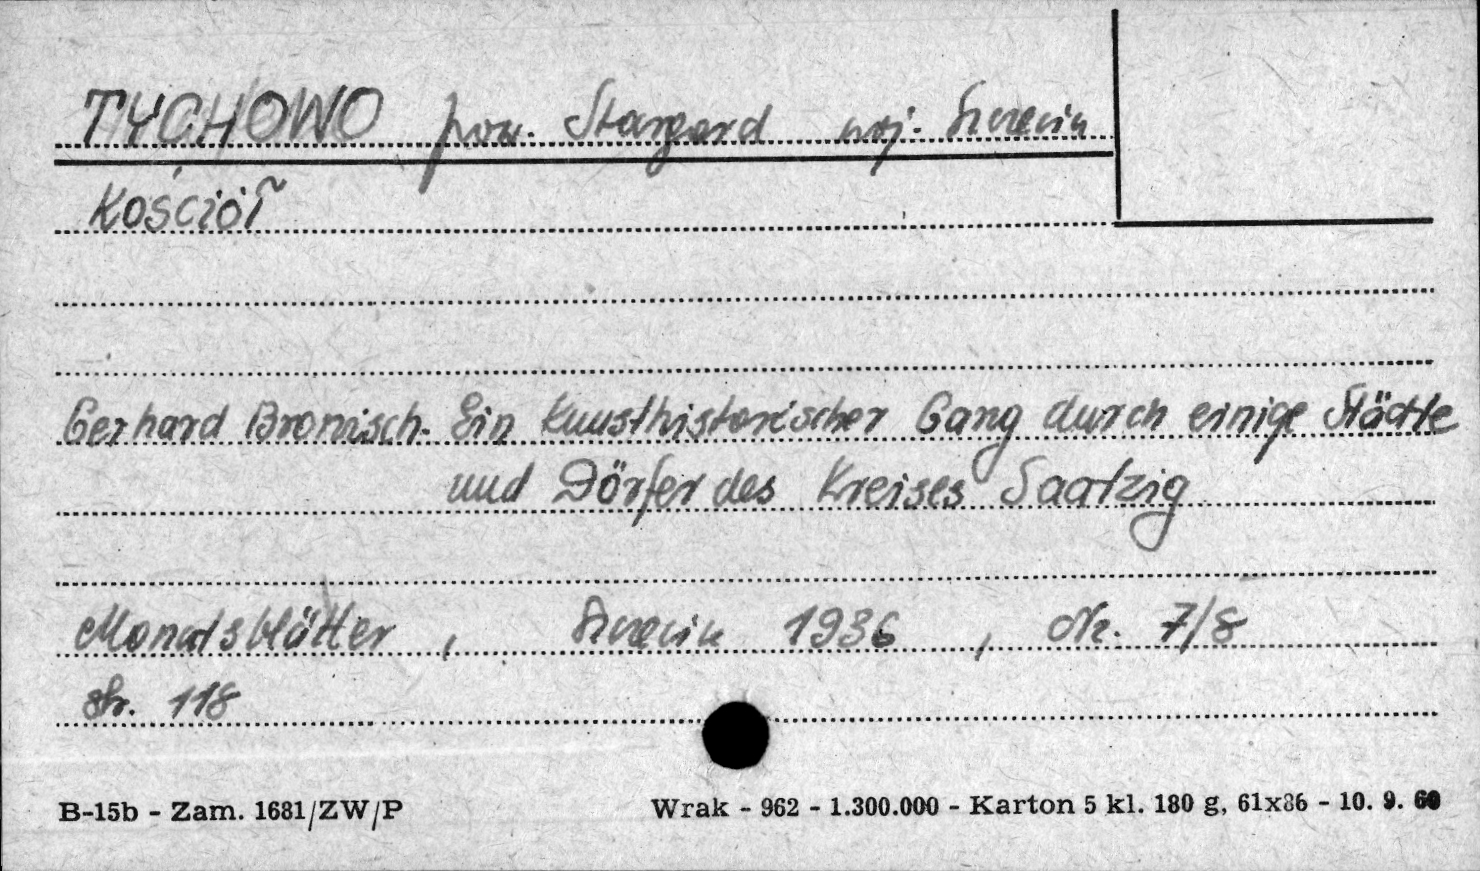 TYCHOWO pow. Stargard woj. Szczecin
Kościół
Gerhard Bronisch. Ein Kunsthistorischer Gang durch einige Städte
und Dörfer des Kreises Saatzig
Monatsblätter, Szczecin 1936, Nr. 7/8
str. 118
B-15b - Zam. 1681/ZW/P Wrak - 962 - 1.300.000 - Karton 5 kl. 180 g, 61x86 - 10. 9. 60